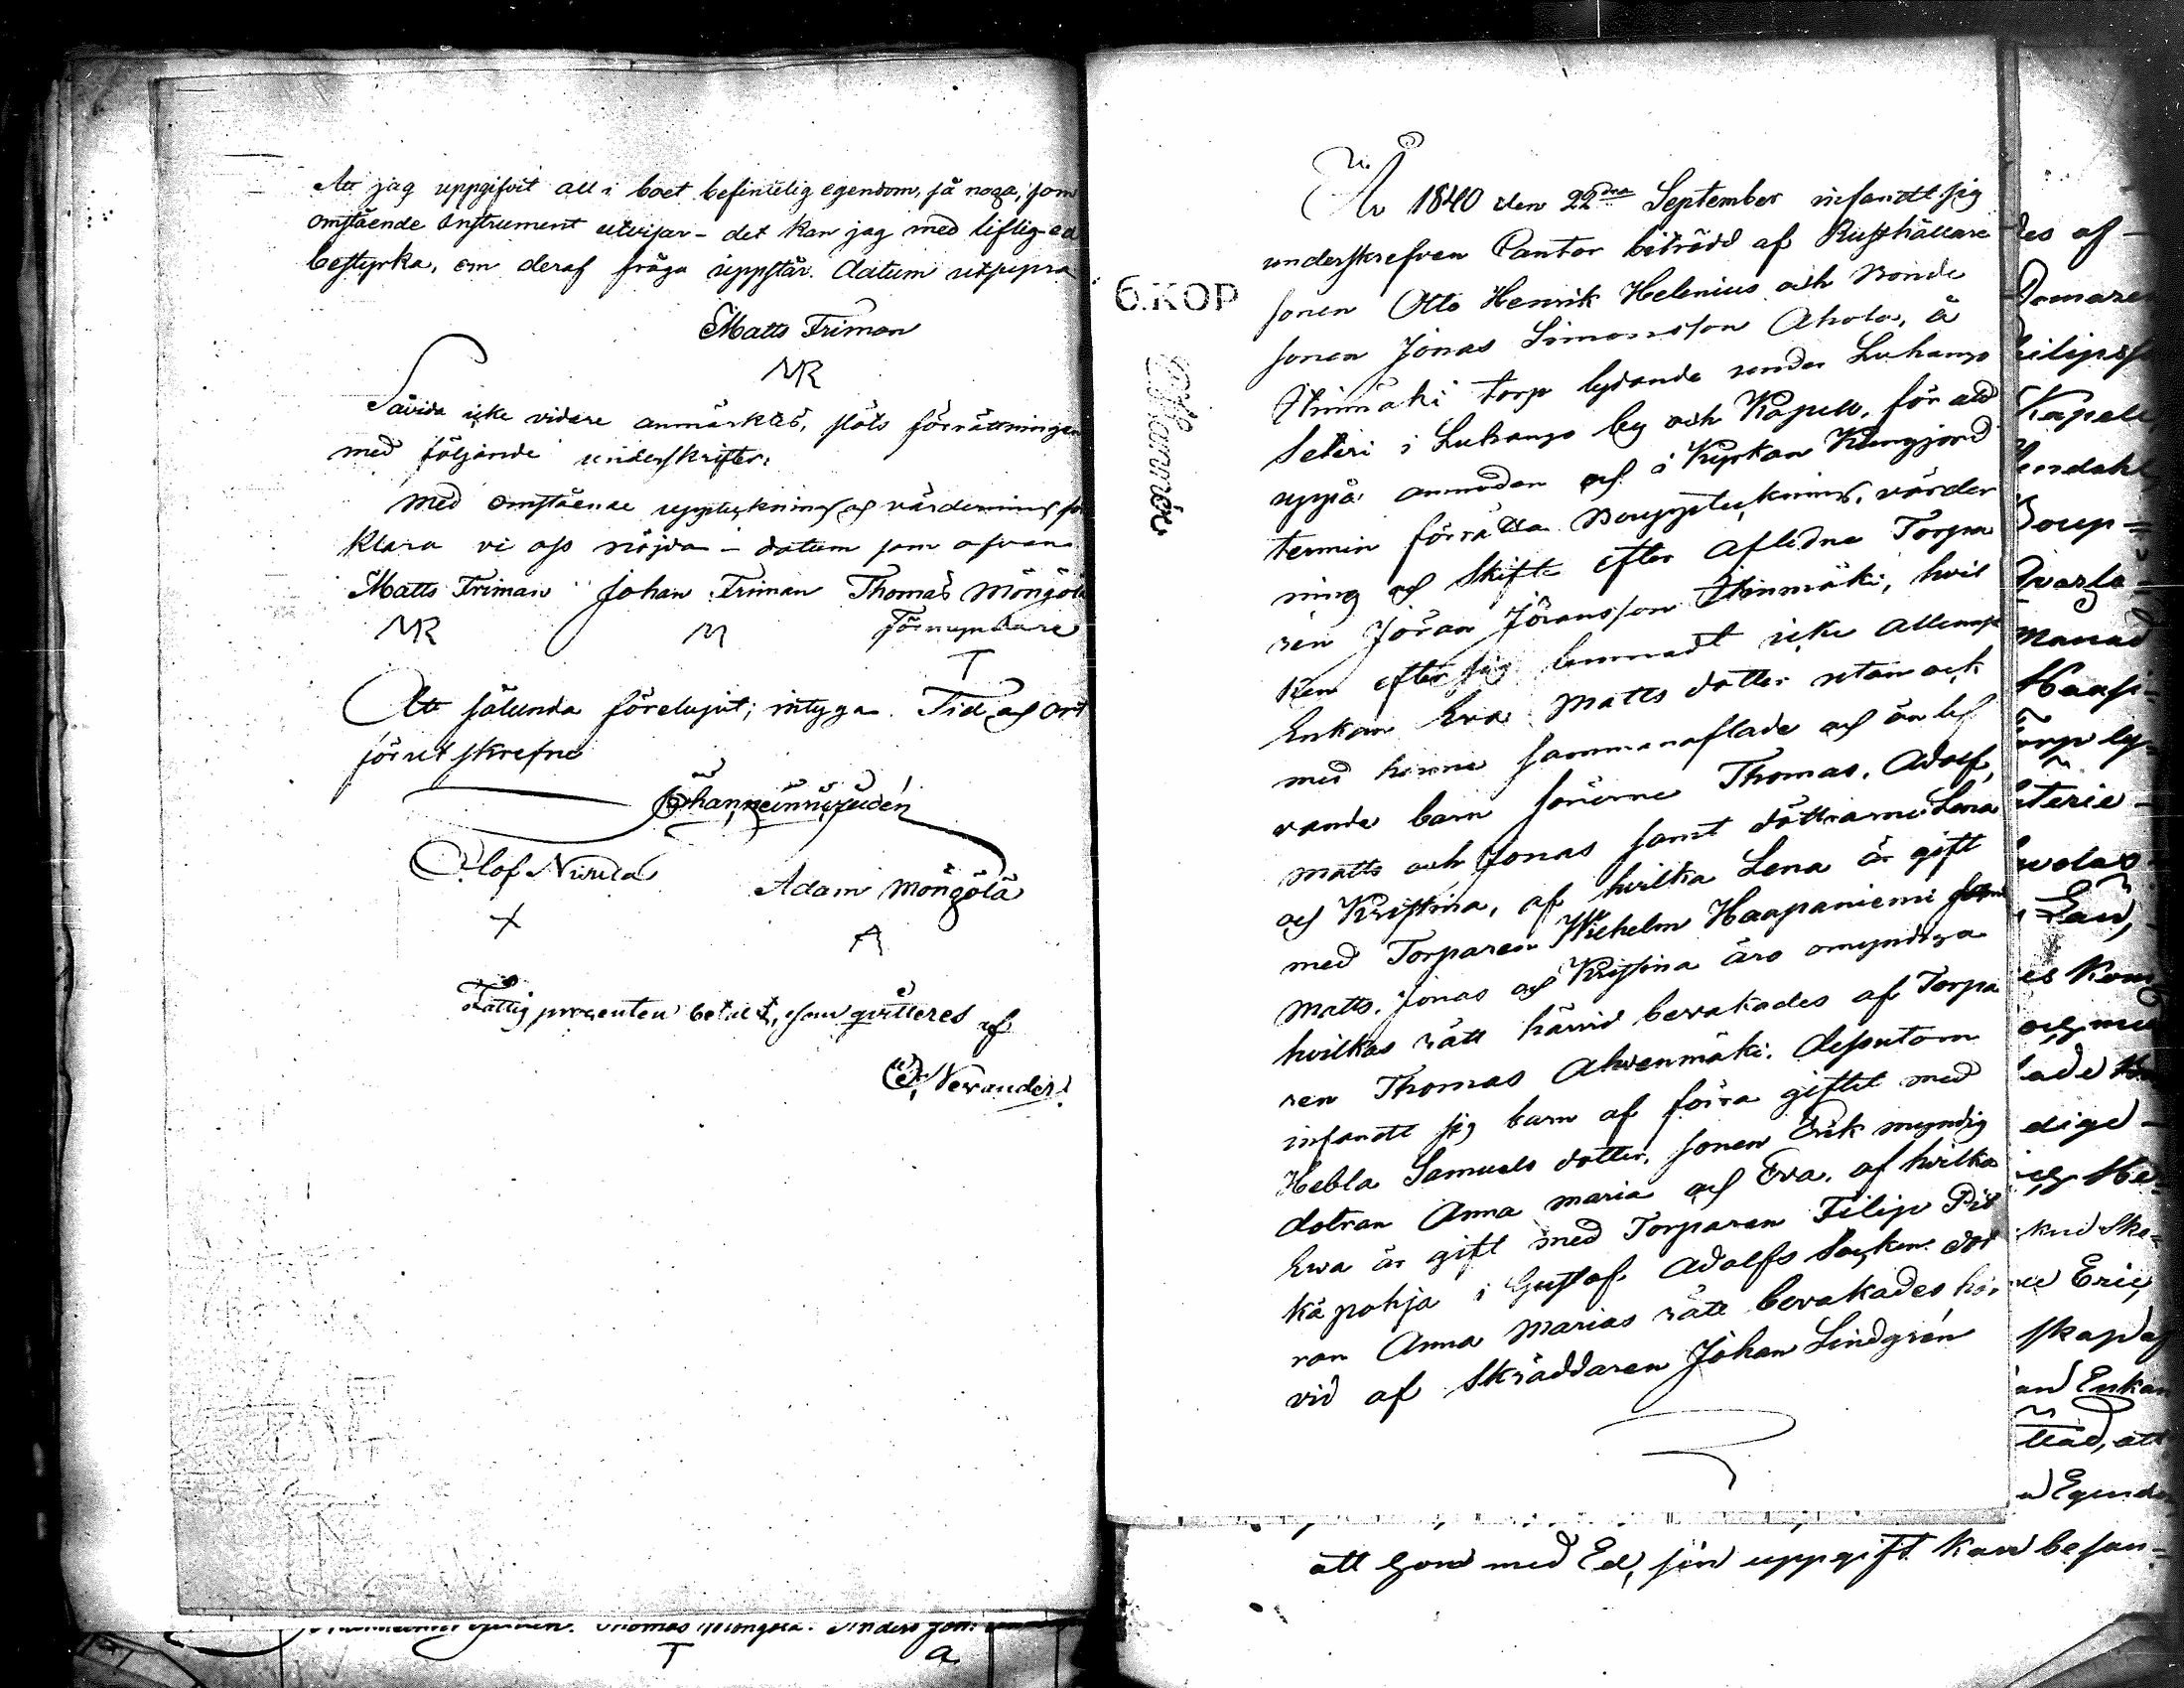 Att jag uppgifvit all i boet befintelig egendom, så noga, som
omstående Instrument utvisar - det kan jag med liflig ed
bestyrka, om deraf fråga uppstår. Datum utsupra
Matts Friman
MR
Såvida icke vidare anmärktes, slöts förrättningen
med följande underskrifter.
Med omstående uppteckning och värdering för
klara vi oss nöjda - datum som ofvan
Matts Friman Johan Friman Thomas Möngölä
MR M Förmyndare
T
Att sålunda förelupit, intyga. Tid och ort
förut skrefne
Olof Ninila Adam Möngölä
X A
Fattig procenten betalt, som qvitteres af
Nerander
År 1840 den 22dra September infandt sig
underskrefven Cantor biträdd af Rusthållare
sonen Otto Henrik Helenius och Bonde
sonen Jonas Simonsson Ahola, å
torp lydande under Luhango
Säteri i Luhango by och Kapell, för att
uppå anmodan och i Kyrkan Kungjord
termin förrätta Bouppteckning, värder
ning och Skifte efter Aflidne Torpa
ren Jöran Jöransson hvil
ken efter sig lemnadt icke allenast
Enkan Eva Matts dotter utan ock
med henne sammanaflade och än lef
vande barn sönerne Thomas, Adolf,
Matts och Jonas samt döttrarne Lena
och Kristina, af hvilka Lena är gift
med Torparen Wilhelm Haapaniemi
Matts, Jonas och Kristina äro omyndiga
hvilkas rätt härvid bevakades af Torpa
ren Thomas Ahvenmäki. dessutom
infandt sig barn af förra giftet med
Hebla Samuels dotter, sonen Erik myndig
dotran Anna Maria och Eva, af hvilka
Ewa är gift med Torparen Filip Pit
käpohja i Gustaf Adolfs Socken dot
ran Anna Marias rätt bevakades här
vid af Skräddaren Johan Lindgrén
6.KOP
des af -
Domaren
Kapell
Boup=
månad
Torp ly=
äterie -
es Kom
och med
lade
dige -
Erie,
skap af
Enkan
att
Egendo
att hon med Ed, sin uppgift kan besan=
Thomas Möngölä. Anders
T a